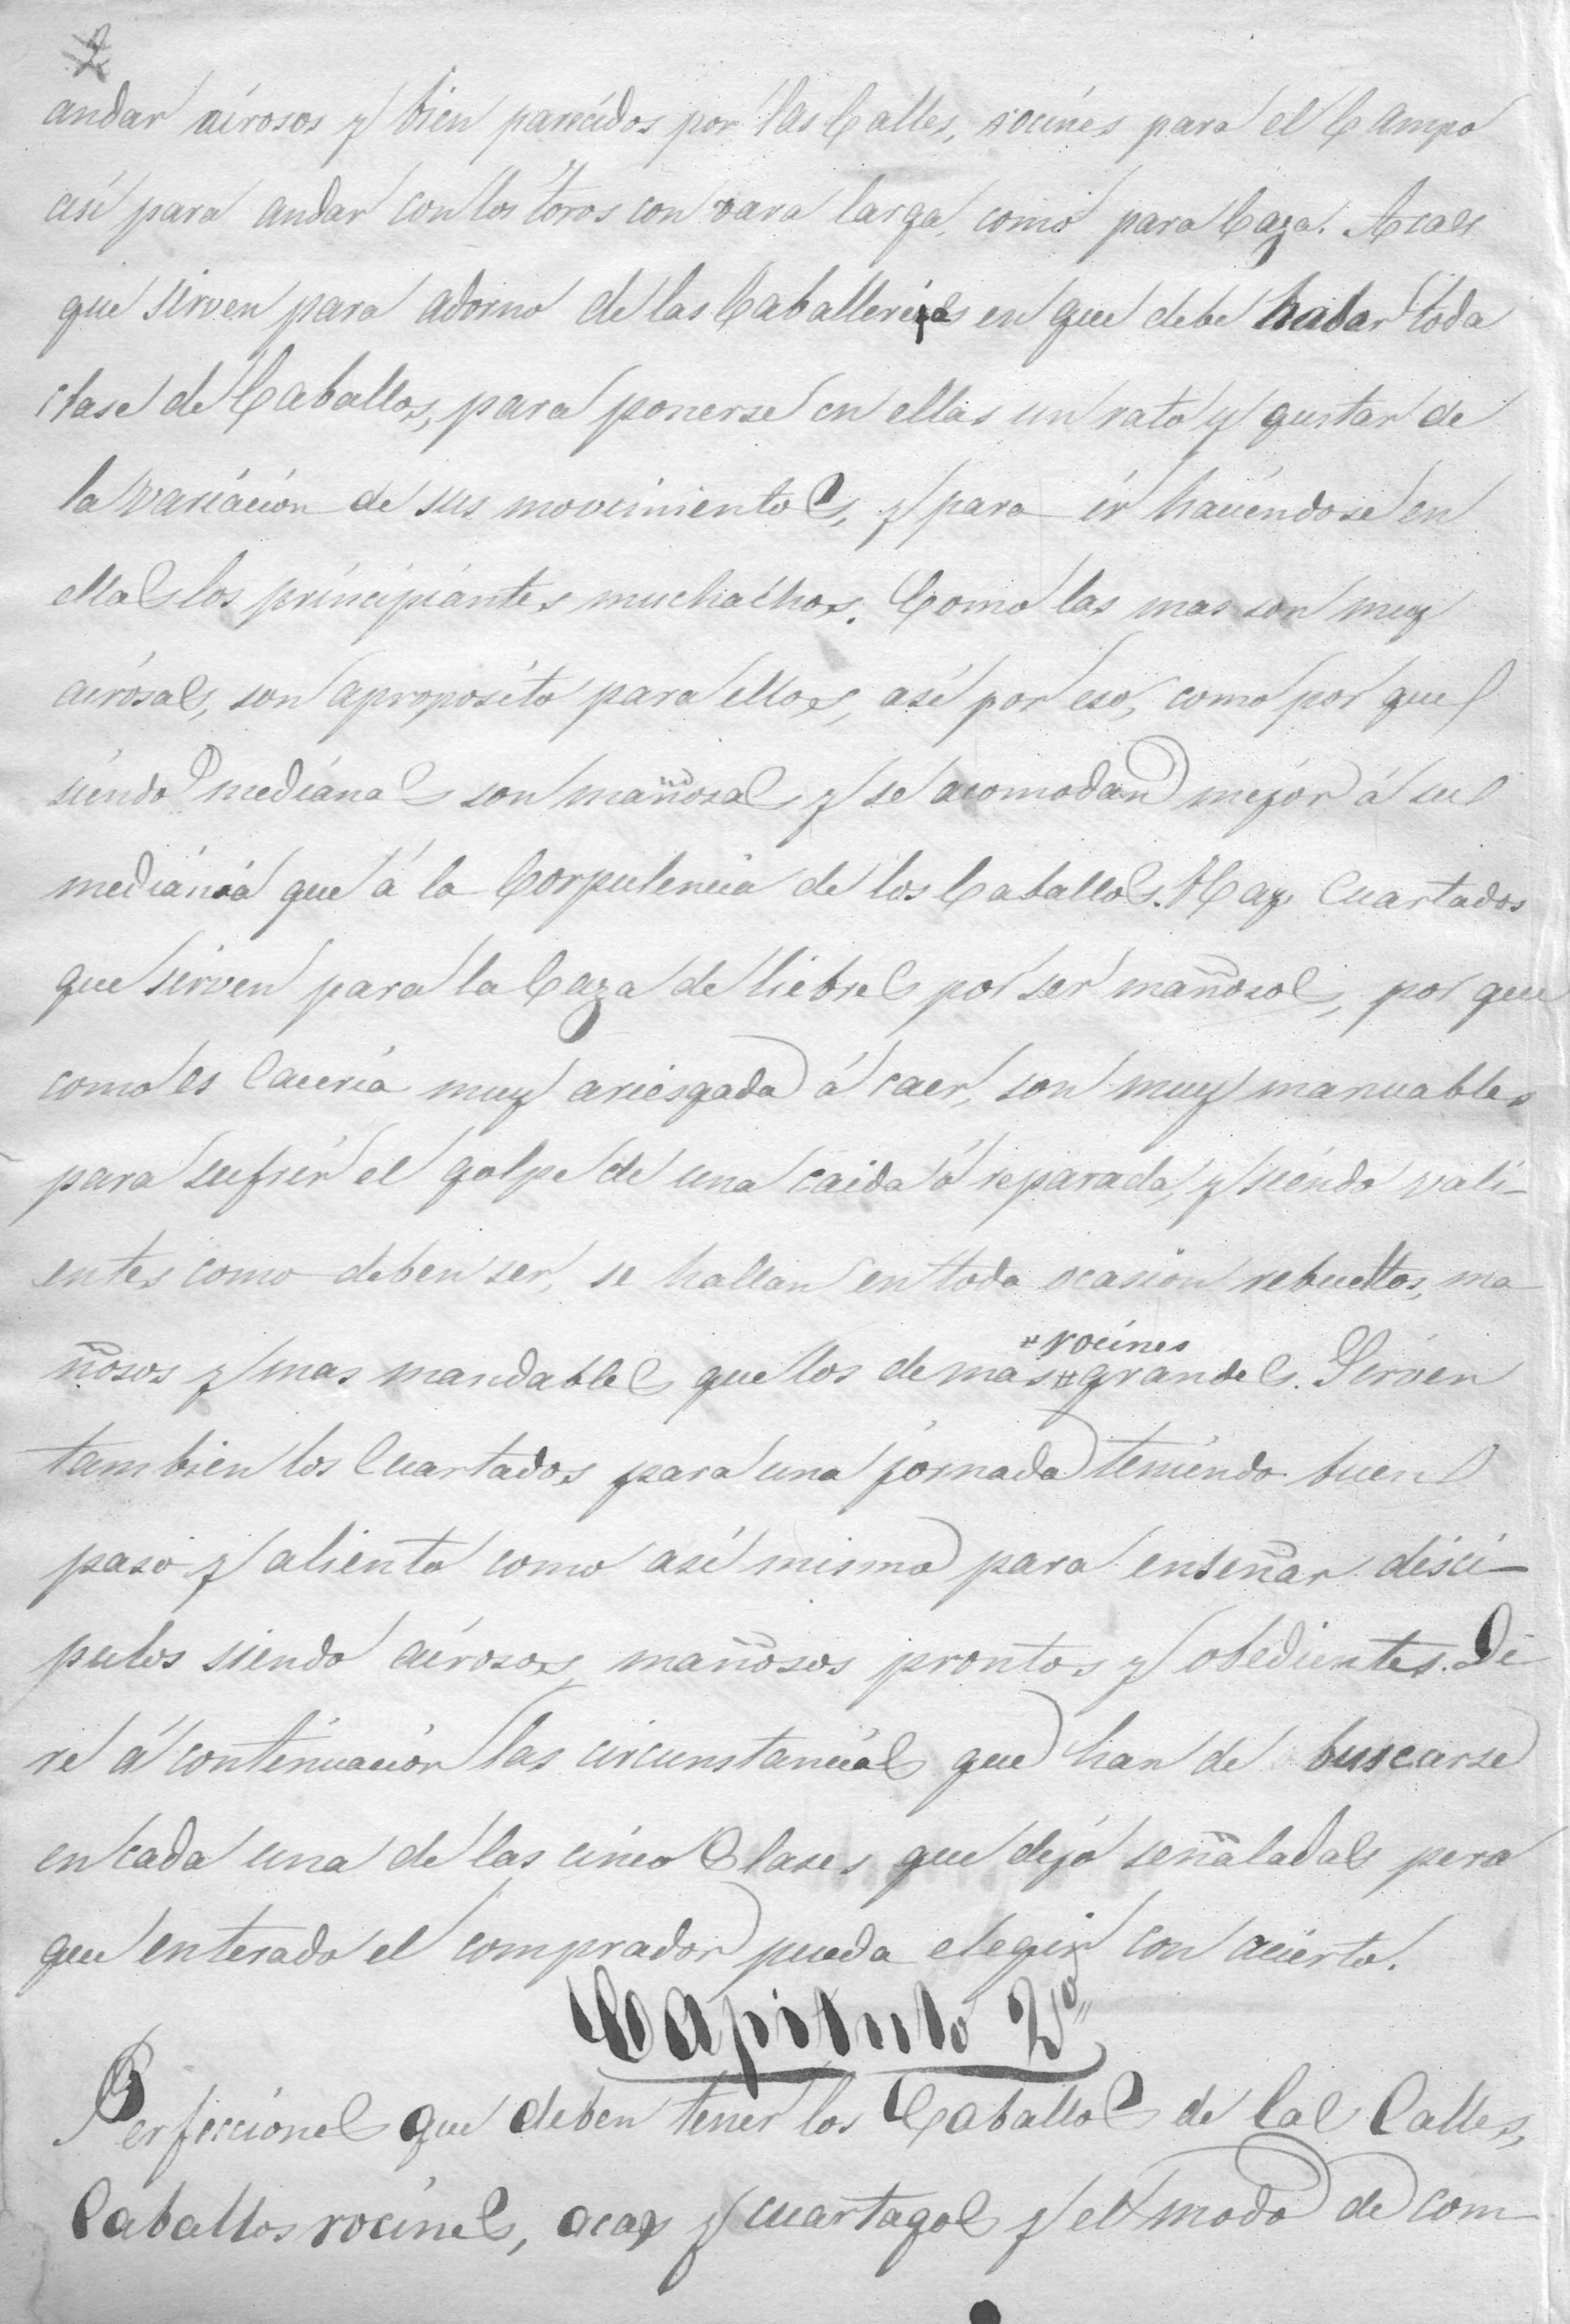 2
andar airosos y bien parecidos por las Calles, rocines para el Campo
asi para andar con los toros con vara larga, como para Caza. Acas
que sirven para adorno de las Caballerizas en que debe haber toda
clase de Caballos, para ponerse en ellas un rato y gustar de
la variacion de sus movimientos, y para ir haciendose en
ellas los principiantes muchachos. Como las mas son muy
airosas, son aproposito para ellos, asi por eso, como por que
siendo medianas son mañosas y se acomodan mejor á su
mediania que á la Corpulencia de los Caballos. Hay Cuartados
que sirven para la Caza de liebres por ser mañosos, por que
como es Caceria muy ariesgada á caer, son muy manuables
para sufrir el golpe de una caida ó reparada, y siendo vali-
entes como deben ser, se hallan en toda ocasion rebueltos, ma
ñosos y mas mandables que los demas # grandes. Sirven
# rocines
tambien los Cuartados para una jornada teniendo buen
paso y aliento como asi mismo para enseñar disci-
pulos siendo airosos, mañosos prontos y obedientes. Di
ré á continuacion las circunstancias que han de buscarse
en cada una de las cinco Clases que dejo señaladas para
que enterado el comprador pueda elegir con acierto.
Capitulo 2º
Perfecciones que deben tener los Caballos de las Calles,
Caballos rocines, acas y cuartagos y el modo de com-